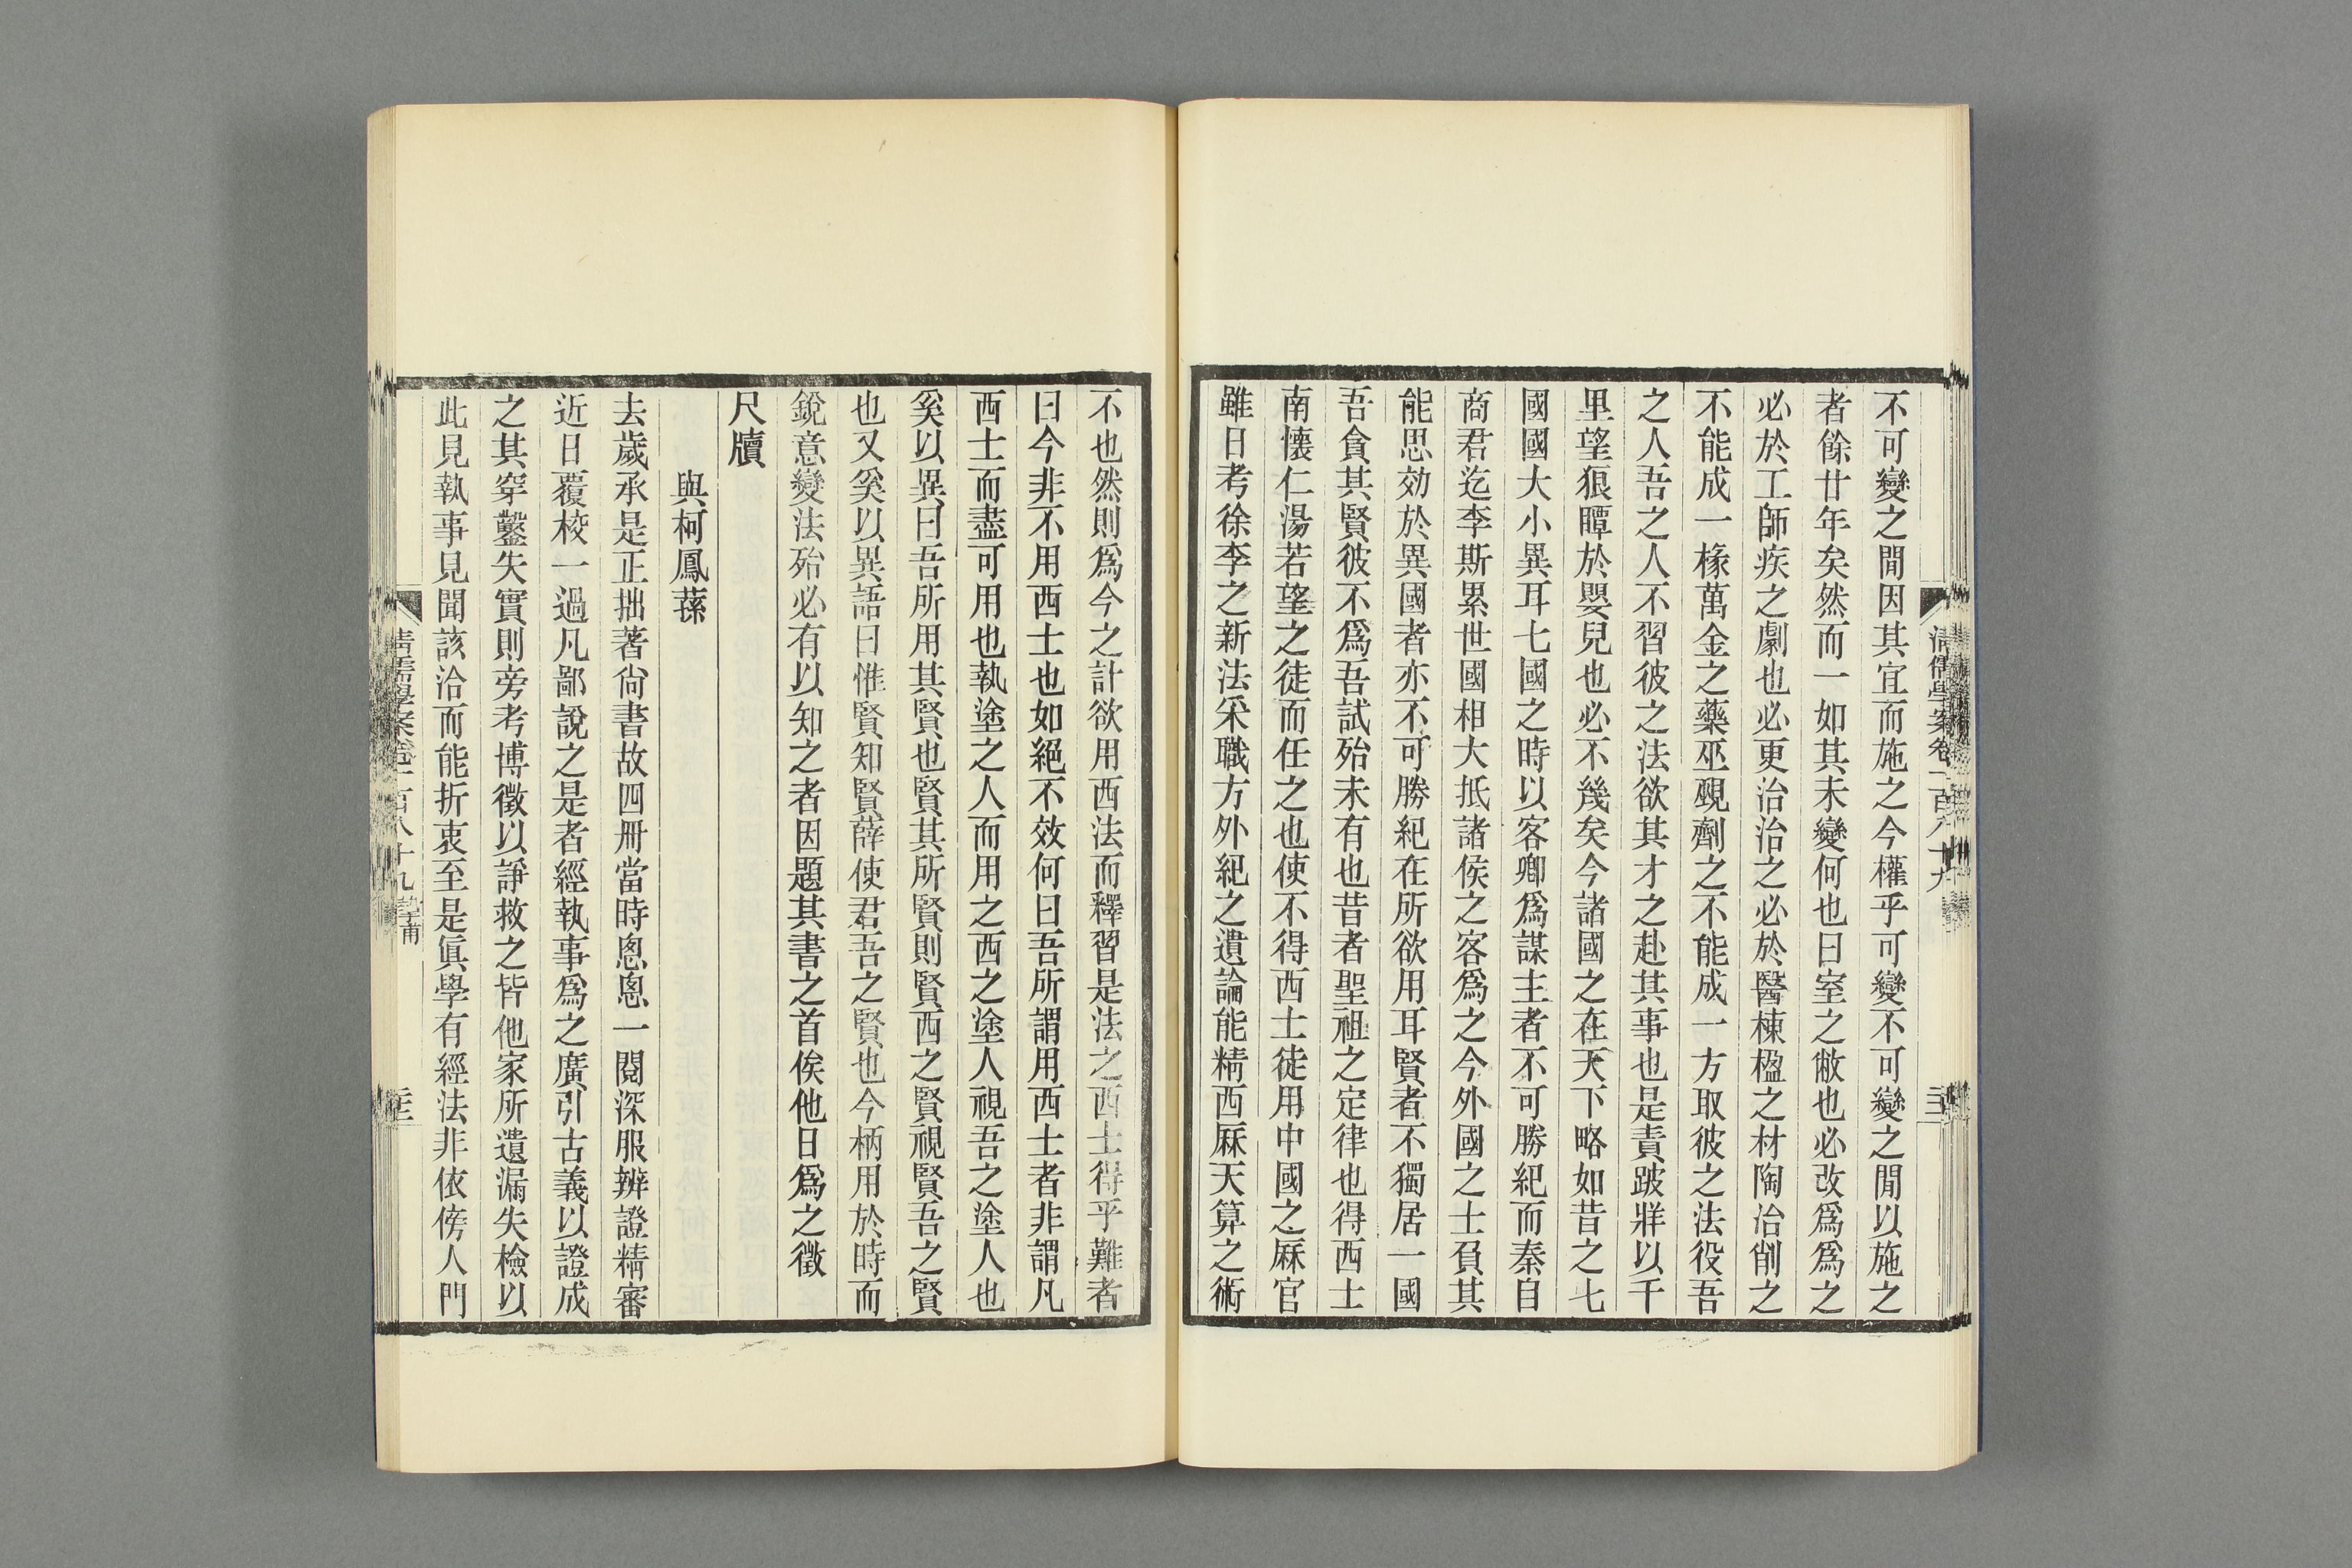 不可變之閒因其宜而施之今權乎可變不可變之閒以施之
者餘廿年矣然而一如其未變何也曰室之敝也必改爲爲之
必於工師疾之劇也必更治治之必於醫棟楹之材陶冶削之
不能成一椽萬金之藥巫覡劑之不能成一方取彼之法役吾
之人吾之人不習彼之法欲其才之赴其事也是責跛牂以千
里望狼瞫於嬰兒也必不幾矣今諸國之在天下略如昔之七
國國大小異耳七國之時以客卿爲謀主者不可勝紀而秦自
商君迄李斯累世國相大抵諸侯之客爲之今外國之士負其
能思効於異國者亦不可勝紀在所欲用耳賢者不獨居一國
吾貪其賢彼不爲吾試殆未有也昔者聖祖之定律也得西士
南懷仁湯若望之徒而任之也使不得西士徒用中國之厤官
雖日考徐李之新法采職方外紀之遺論能精西厤天算之術
不也然則爲今之計欲用西法而釋習是法之西士得乎難者
曰今非不用西士也如絕不效何曰吾所謂用西士者非謂凡
西士而盡可用也執塗之人而用之西之塗人視吾之塗人也
奚以異曰吾所用其賢也賢其所賢則賢西之賢視賢吾之賢
也又奚以異語曰惟賢知賢薛使君吾之賢也今柄用於時而
銳意變法殆必有以知之者因題其書之首俟他日爲之徵
尺牘
與柯鳳蓀
去歲承是正拙著尙書故四冊當時悤悤一閱深服辨證精審
近日覆校一過凡鄙說之是者經執事爲之廣引古義以證成
之其穿鑿失實則旁考博徵以諍救之皆他家所遺漏失檢以
此見執事見聞該洽而能折衷至是眞學有經法非依傍人門
清儒學案卷一百八十九